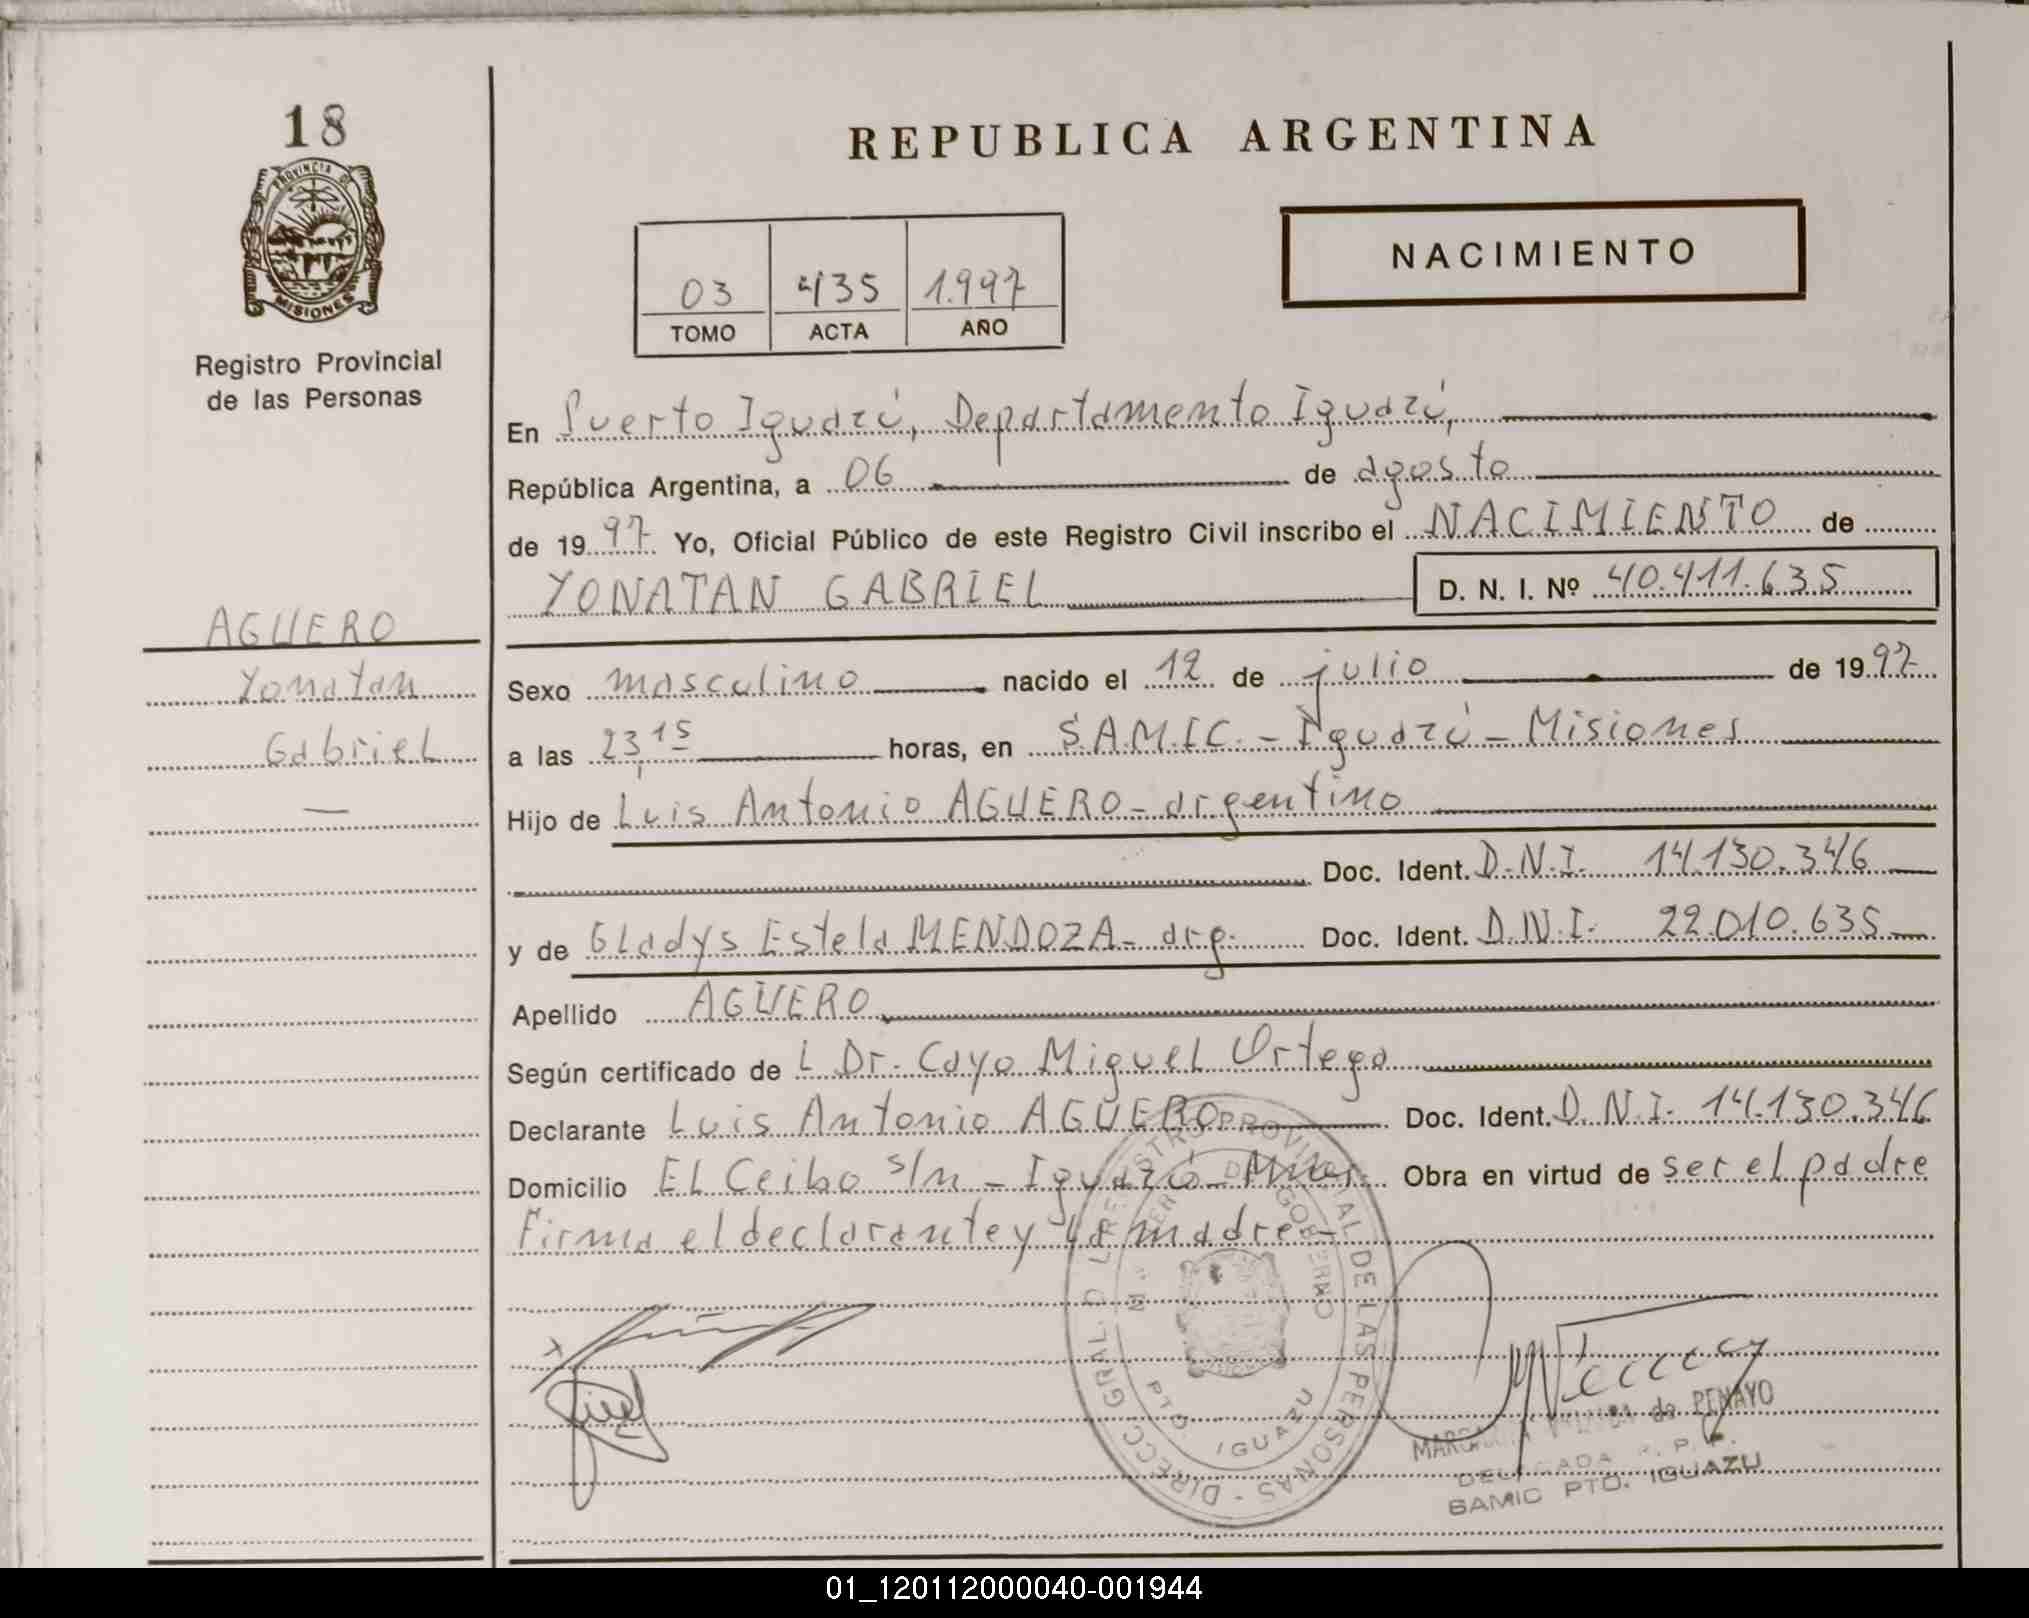 18
PROVINCIA DE
MISIONES
Registro Provincial
de las Personas
AGUERO
Yonatan
Gabriel
REPUBLICA ARGENTINA
NACIMIENTO
03 435 1.997
TOMO ACTA AÑO
En Puerto Iguazú, Departamento Iguazú,
República Argentina, a 06 de agosto
de 1997 Yo, Oficial Público de este Registro Civil inscribo el NACIMIENTO de
YONATAN GABRIEL D. N. I. Nº 40.411.635
Sexo masculino nacido el 12 de julio de 1997
a las 23,15 horas, en S.A.M.I.C. - Iguazú - Misiones
Hijo de Luis Antonio AGUERO - argentino
Doc. Ident. D.N.I. 14.130.346
y de Gladys Estela MENDOZA - arg. Doc. Ident. D.N.I. 22.010.635
Apellido AGÜERO
Según certificado de L Dr. Cayo Miguel Ortega
Declarante Luis Antonio AGÜERO Doc. Ident. D.N.I. 14.130.346
Domicilio El Ceibo s/n - Iguazú - Mnes. Obra en virtud de ser el padre
Firma el declarante y la madre
DIRECC GRAL. D L REGISTRO PROVINCIAL DE LAS PERSONAS
DE GOBIERNO
PTO. IGUAZU
de PENAYO
DELEGADA R. P. P.
SAMIC PTO. IGUAZU
01_120112000040-001944